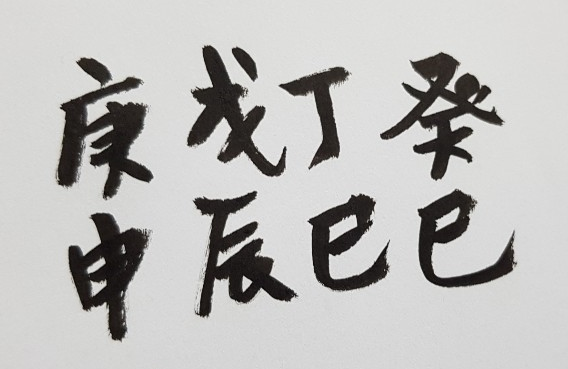 庚戊丁癸
申辰巳巳